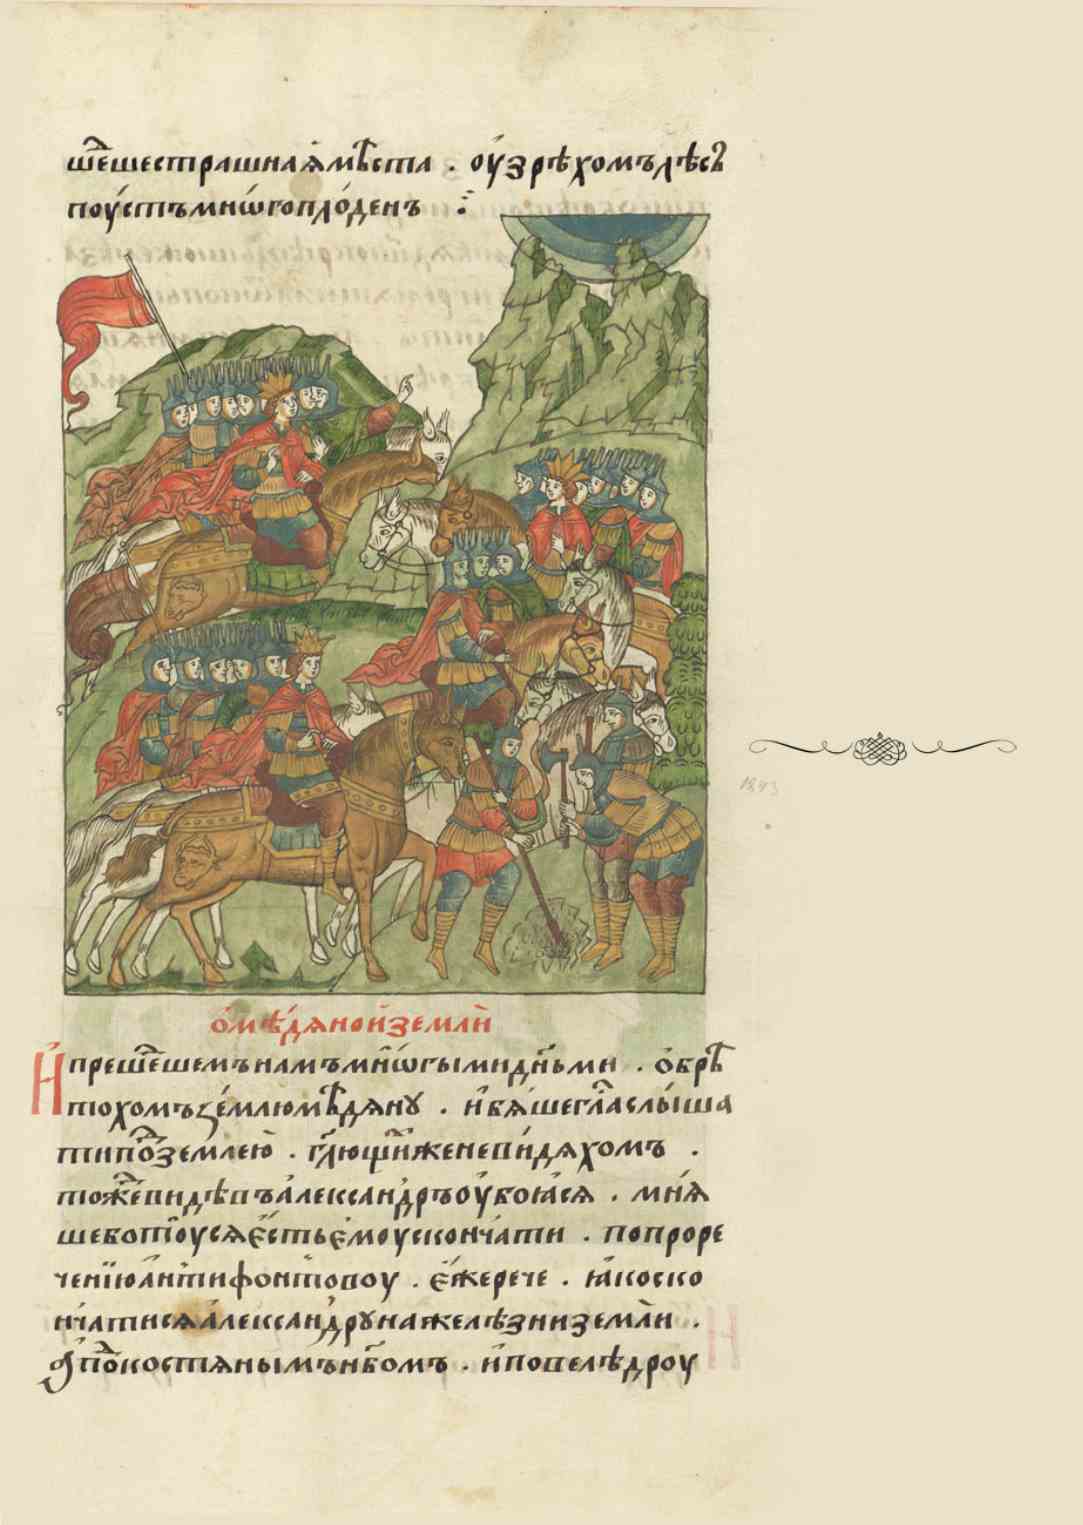 шедшестрашнаꙗмѣста . оузрѣхомълѣсъ
поустъмнѡгоплоденъ ⁖
ѡмѣдянойземли
Ипрешедшемънамъмнѡгымидньми . обрѣ
тохомъземлюмѣдяну . ибяшегласлыша
типодземлею . глющиженевидяхомъ .
тожевидѣвъалеѯандръоубоꙗся . мня
шеботоусяестьемоускончати . попроре
ченїюантифонтовоу . ежерече . ꙗкоско
нчатисяалеѯандрунажелѣзниземли .
подкостянымънбомъ . иповелѣдроу